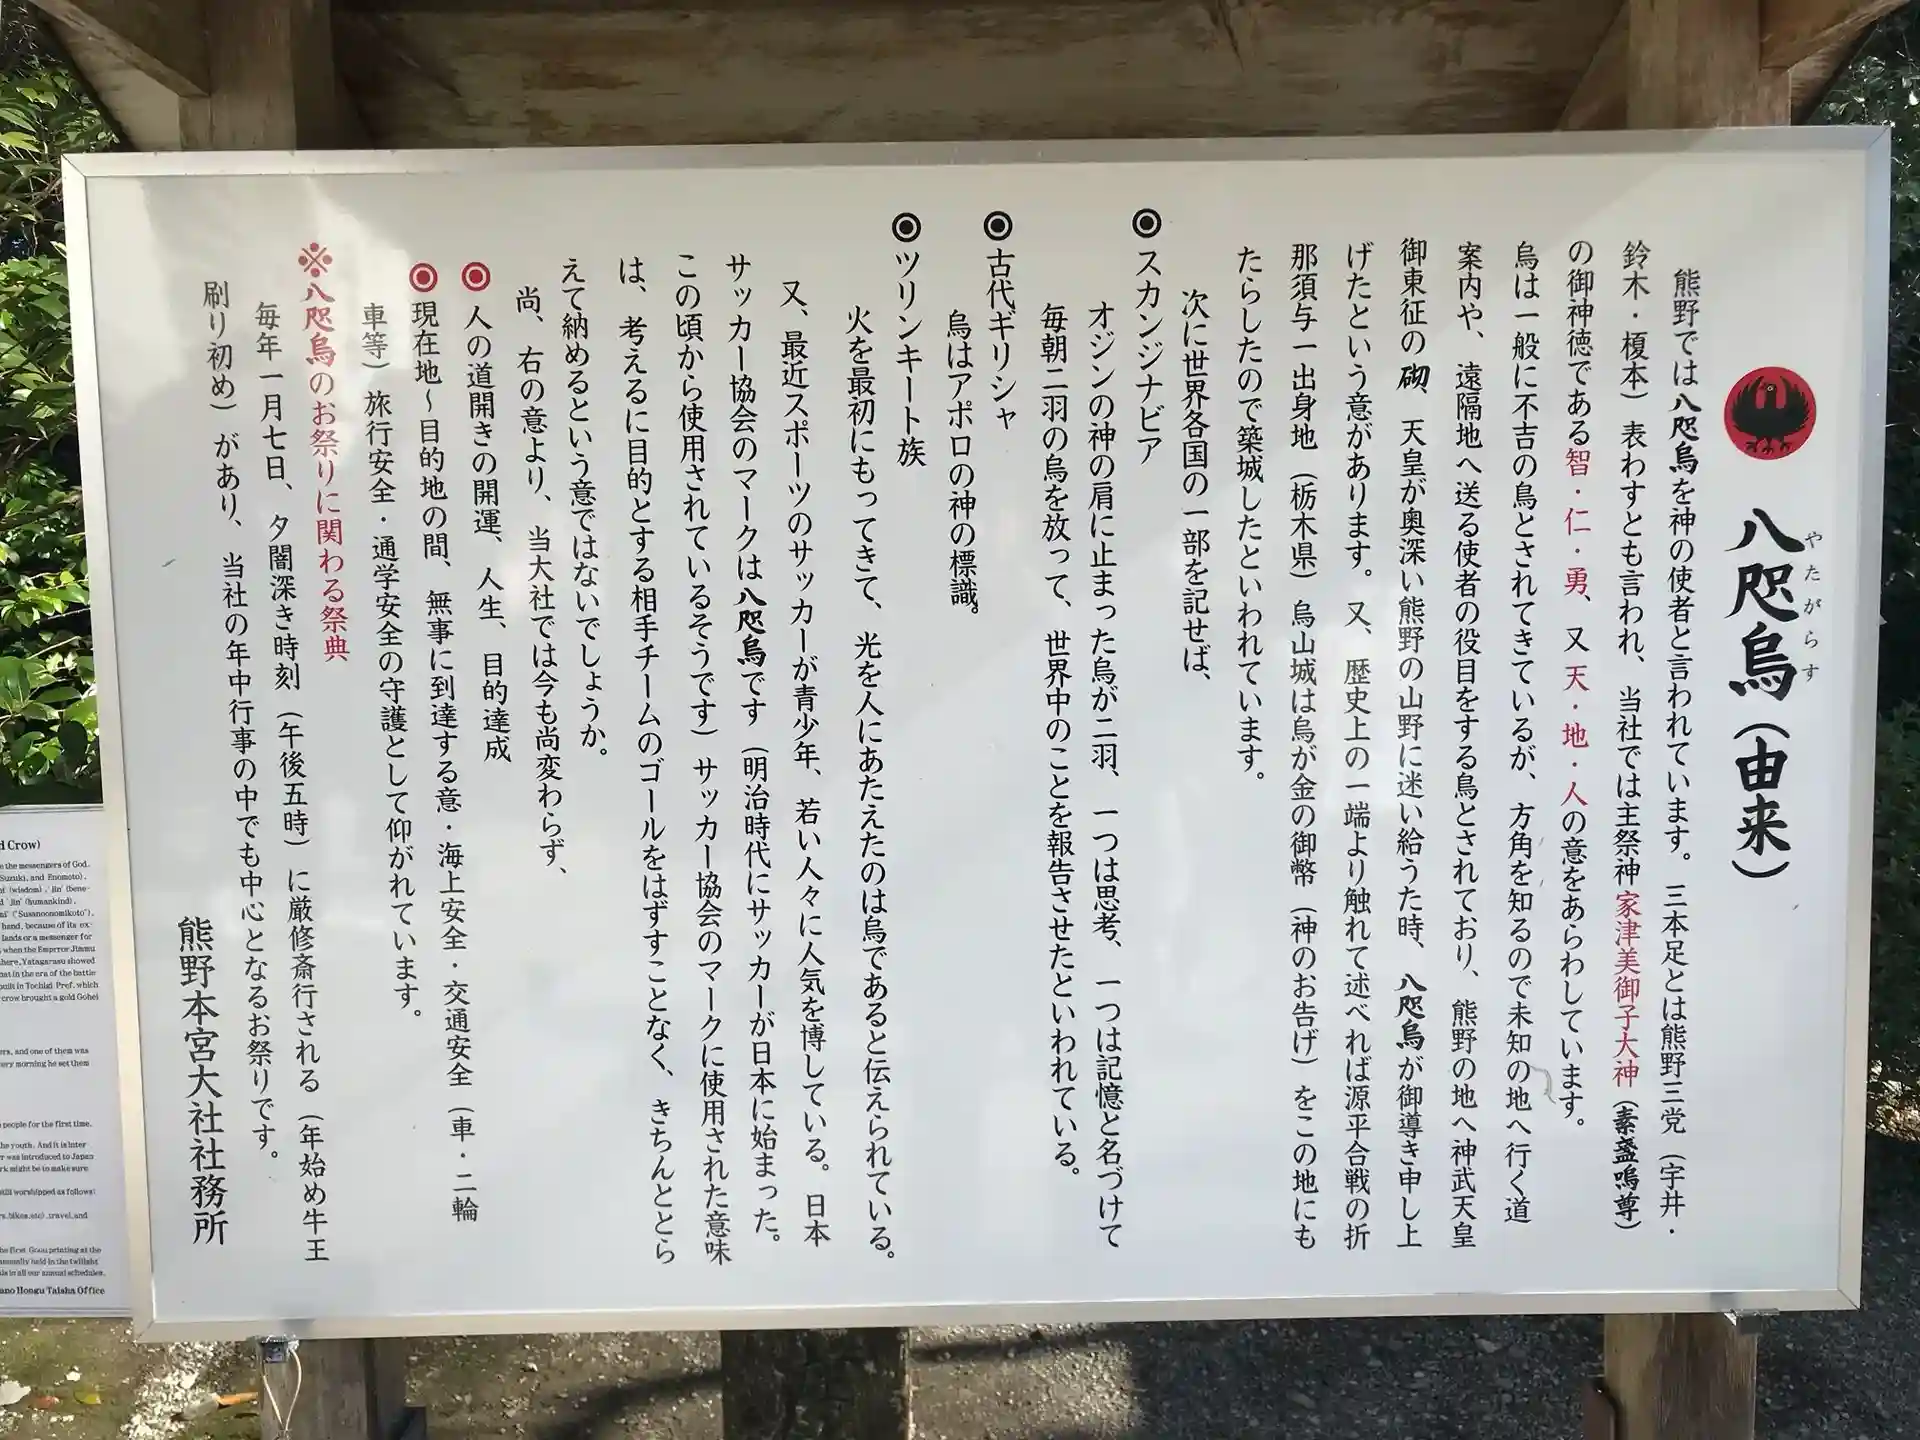 八咫烏（由来）
やたがらす
熊野では八咫烏を神の使者と言われています。三本足とは熊野三党（宇井・
鈴木・榎本）表わすとも言われ、当社では主祭神家津美御子大神（素盞嗚尊）
の御神徳である智・仁・勇、又天・地・人の意をあらわしています。
烏は一般に不吉の鳥とされてきているが、方角を知るので未知の地へ行く道
案内や、遠隔地へ送る使者の役目をする鳥とされており、熊野の地へ神武天皇
御東征の砌、天皇が奥深い熊野の山野に迷い給うた時、八咫烏が御導き申し上
げたという意があります。又、歴史上の一端より触れて述べれば源平合戦の折
那須与一出身地（栃木県）烏山城は烏が金の御幣（神のお告げ）をこの地にも
たらしたので築城したといわれています。
次に世界各国の一部を記せば、
◉スカンジナビア
オジンの神の肩に止まった烏が二羽、一つは思考、一つは記憶と名づけて
毎朝二羽の烏を放って、世界中のことを報告させたといわれている。
◉古代ギリシャ
烏はアポロの神の標識。
◉ツリンキート族
火を最初にもってきて、光を人にあたえたのは烏であると伝えられている。
又、最近スポーツのサッカーが青少年、若い人々に人気を博している。日本
サッカー協会のマークは八咫烏です（明治時代にサッカーが日本に始まった。
この頃から使用されているそうです）サッカー協会のマークに使用された意味
は、考えるに目的とする相手チームのゴールをはずすことなく、きちんととら
えて納めるという意ではないでしょうか。
尚、右の意より、当大社では今も尚変わらず、
◉人の道開きの開運、人生、目的達成
◉現在地～目的地の間、無事に到達する意・海上安全・交通安全（車・二輪
車等）旅行安全・通学安全の守護として仰がれています。
※八咫烏のお祭りに関わる祭典
毎年一月七日、夕闇深き時刻（午後五時）に厳修斎行される（年始め牛王
刷り初め）があり、当社の年中行事の中でも中心となるお祭りです。
熊野本宮大社社務所
d Crow)
e the messengers of God.
Suzuki, and Enomoto).
(wisdom), 'Jin' (bene-
d 'Jin' (humankind).
("Susanoonomikoto").
hand, because of its ex-
lands or a messenger for
when the Emperor Jimmu
here, Yatagarasu showed
hat in the era of the battle
built in Tochigi Pref. which
crow brought a gold Gohei
ers, and one of them was
ery morning he set them
people for the first time.
he youth. And it is inter-
r was introduced to Japan
rk might be to make sure
still worshipped as follows:
rs, bikes, etc), travel, and
he first Goou printing at the
annually held in the twilight
is in all our annual schedules.
ano Hongu Taisha Office